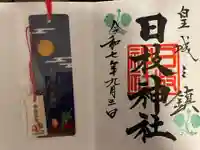 皇城之鎮
日枝神社
令和七年九月三日